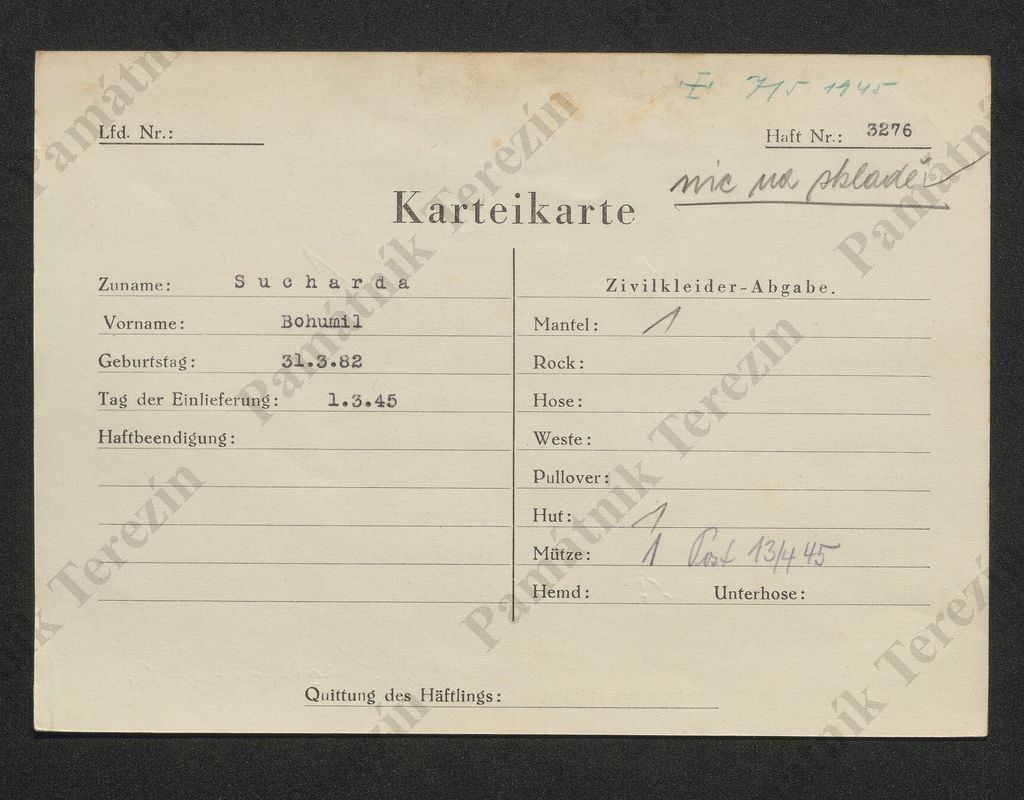 E 7/5 1945
Lfd. Nr.:
Haft Nr.: 3276
nic na skladě
Karteikarte
Zuname: Sucharda
Vorname: Bohumil
Geburtstag: 31.3.82
Tag der Einlieferung: 1.3.45
Haftbeendigung:
Zivilkleider-Abgabe.
Mantel: 1
Rock:
Hose:
Weste:
Pullover:
Hut: 1
Mütze: 1 Post 13/4 45
Hemd: Unterhose:
Quittung des Häftlings:
Památník Terezín
Památník Terezín
Památník Terezín
Památník Terezín
Památník Terezín